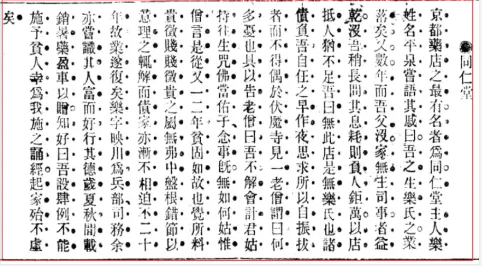 同仁堂
京都藥店之最有名者爲同仁堂主人樂
姓名平泉嘗語其戚曰吾之生樂氏之業
落矣又數年而吾父沒家無生司事者益
乾沒吾稍長問其息耗則負人鉅萬以店
抵人猶不足吾曰無此店是無樂氏也諸
債負吾自任之早作夜思求所以自振拔
者而不得偶於伏魔寺見一老僧謂曰何
多憂也具以告老僧曰吾不解會計君姑
持往生咒佛當佑子念事旣無如何姑惟
僧言是從又一二年貧固如故也覺所料
貴徵賤賤徵貴之屬無弗中盤根錯節以
意理之輒解而債家亦漸不相迫不二十
年故業遂復矣樂字映川爲兵部司務余
亦嘗識其人富而好行其德歲夏秋間載
銷暑藥盈車以贈知好曰吾設肆例不能
施予貧人幸爲我施之誦經起家殆不虛
矣